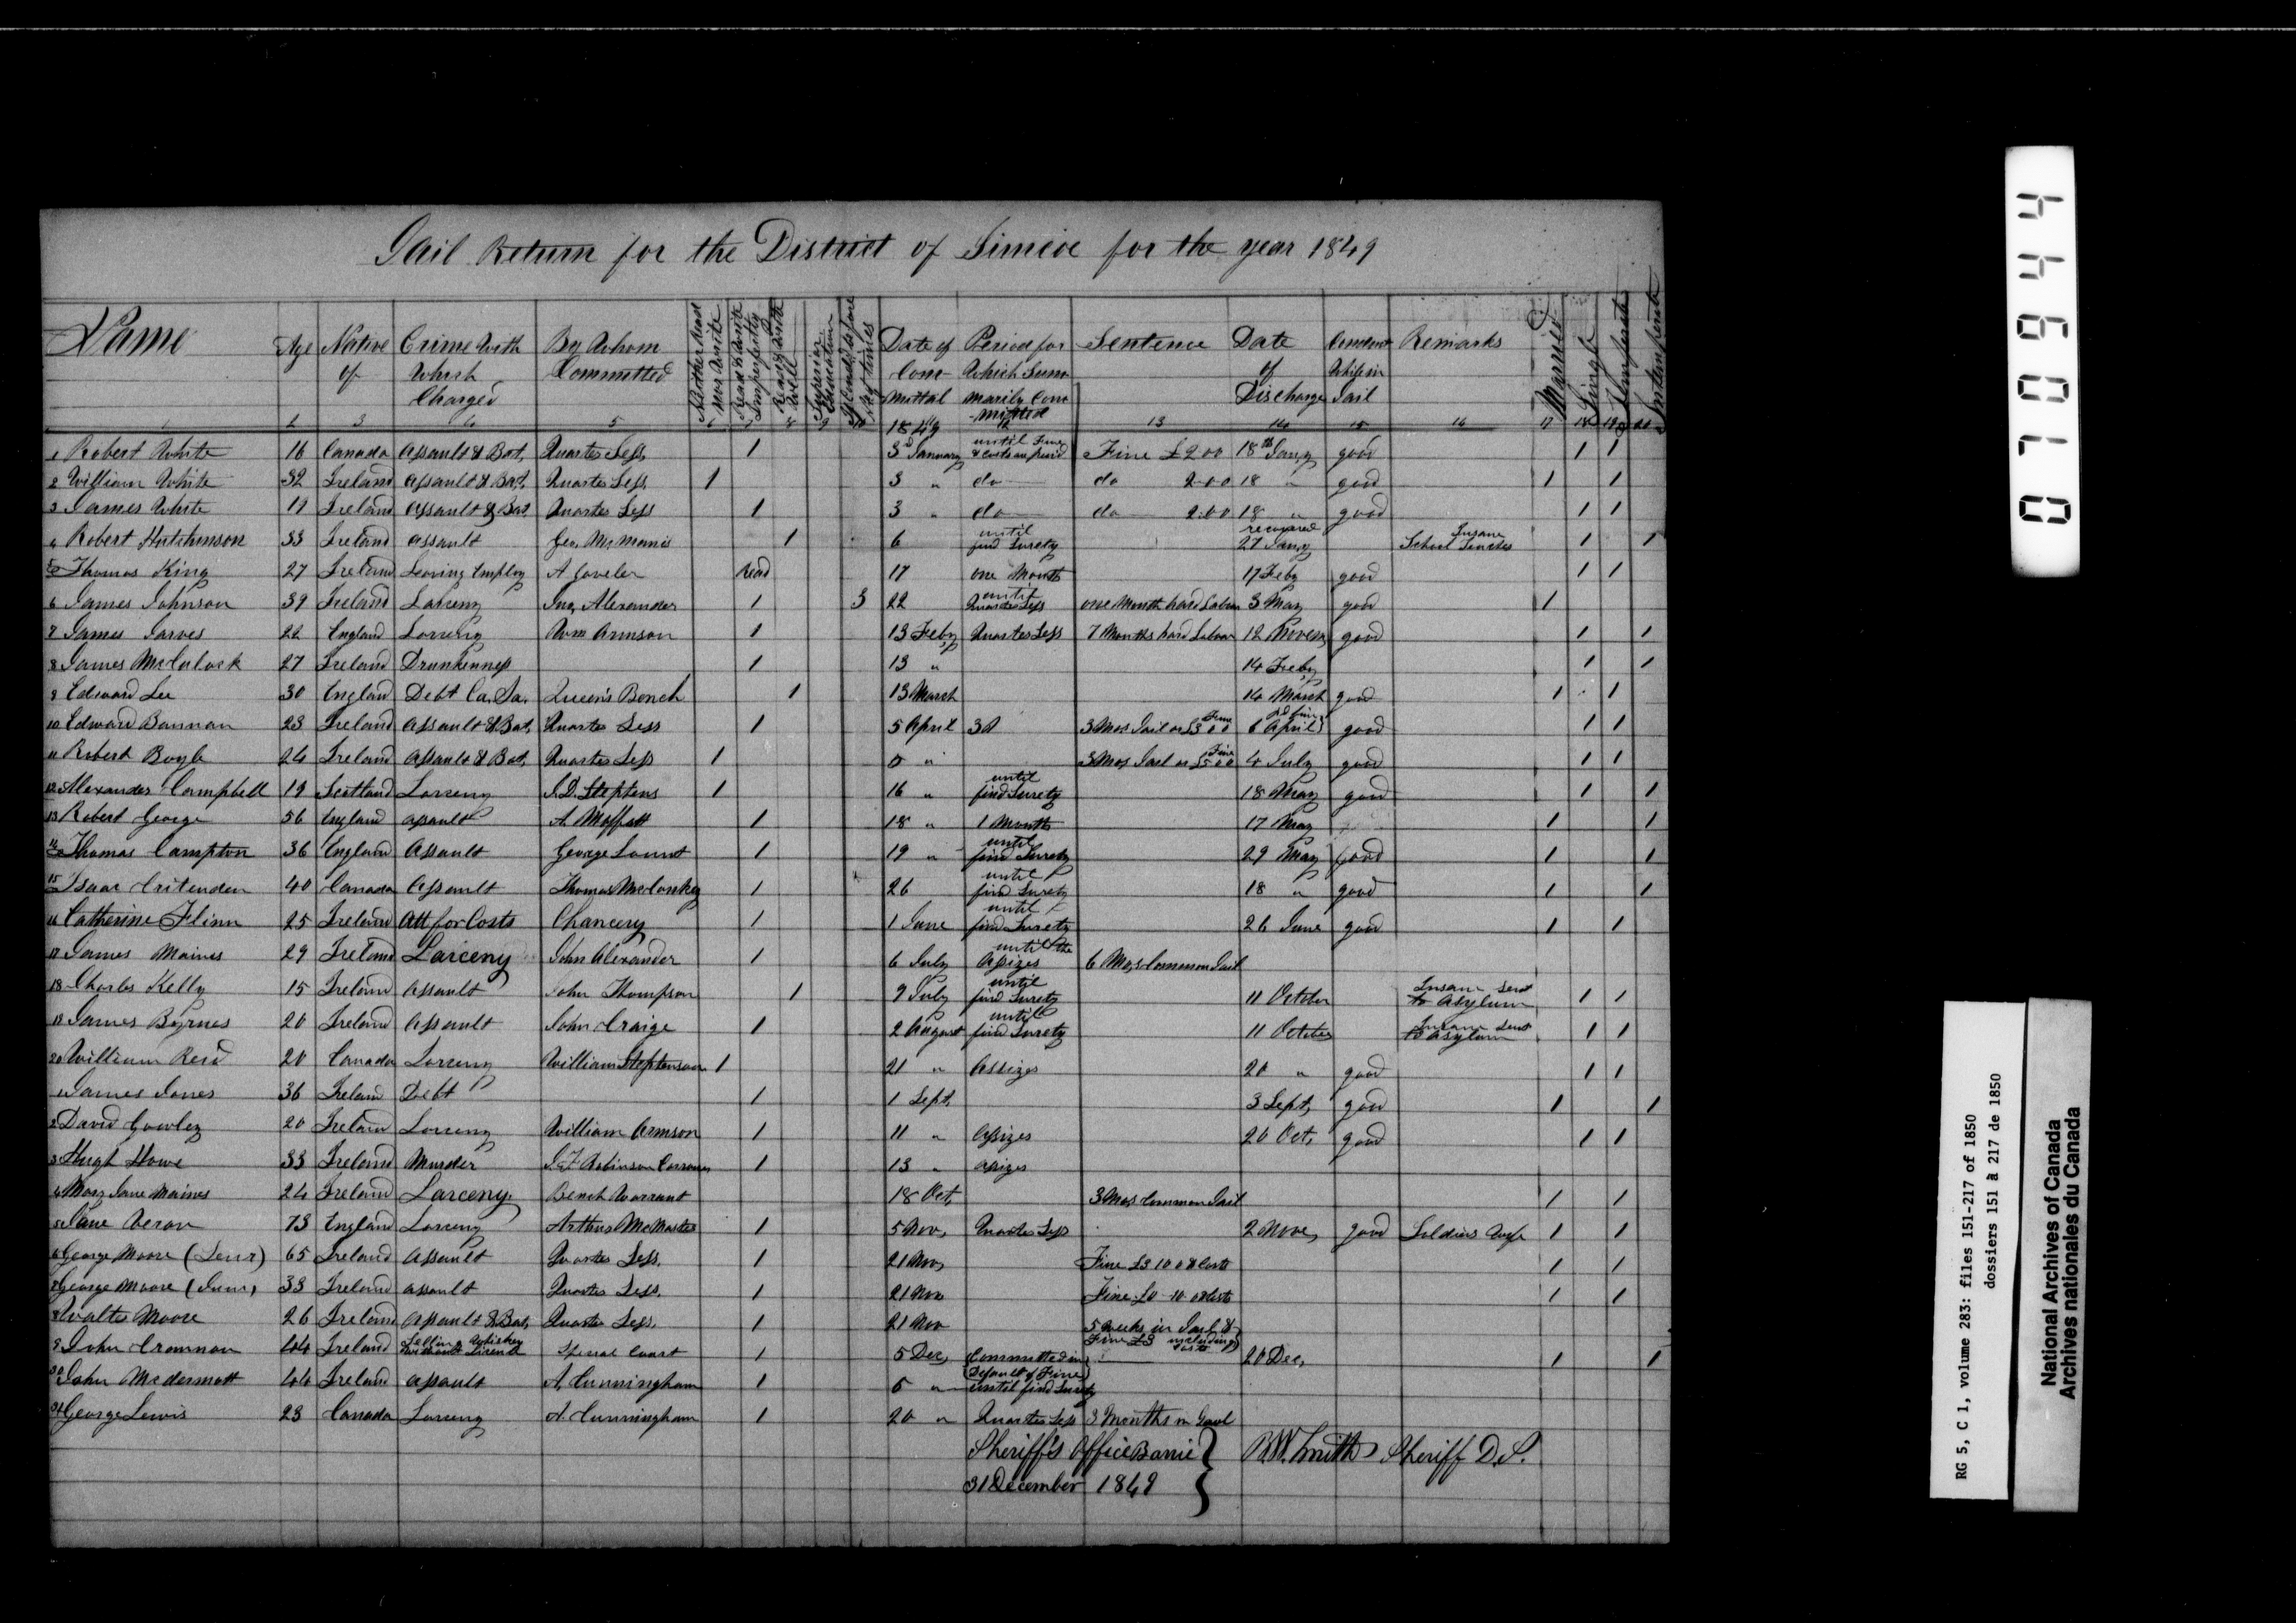 Gail Return for the District of Simcoe for the year 1849
Name Age Native of Crime With Which Charged By Whom Committed Neither Read Nor Write Read & Write Imperfectly Read & Write Well Superior Education If Confined before what times Date of Committal Period for Which Summarily Committed Sentence Date of Discharge Conduct While in Jail Remarks Married Single Temperate Intemperate
1 2 3 4 5 6 7 8 9 10 1849 12 13 14 15 16 17 18 19 20
1 Robert White 16 Canada Assault & Bat, Quarter Sess, 1 3d January until Fine & costs are paid Fine £2 00 18th Jany good 1 1
2 William White 32 Ireland Assault & Bat, Quarter Sess 1 3 " do do 2-00 18 " good 1 1
3 James White 19 Ireland Assault & Bat, Quarter Sess 1 3 " do do 2:00 18 " good 1 1
4 Robert Hutchinson 33 Ireland Assault Geo, McManis 1 6 until find Surety 27 Jany Insane School Teacher 1 1
5 Thomas King 27 Ireland Leaving Employ A Gaveler Read 17 one Month 17 Feby good 1 1
6 James Johnson 39 Ireland Larceny Jno, Alexander 1 3 22 until Quarter Sess one Month hard Labour 3 May good 1
7 James Jarves 22 England Larceny Wm Armson 1 13 Feby Quarter Sess 7 Months hard Labour 12 Novem good 1 1
8 James McCulock 27 Ireland Drunkenness 1 13 " 14 Feby 1 1
9 Edward Lee 30 England Debt Ca. Sa. Queen's Bench 1 13 March 14 March good 1 1
10 Edward Bannan 23 Ireland Assault & Bat, Quarter Sess 1 5 April 3d 3 Mos Jail or £3 0 0 Fine pd fine 6 April good 1 1
11 Robert Boyle 24 Ireland Assault & Bat, Quarter Sess 1 5 " 3 Mos Jail or £5 0 0 Fine 4 July good 1 1
12 Alexander Campbell 19 Scotland Larceny J. D. Stephens 1 16 " until find Surety 18 May good 1 1
13 Robert George 56 England Assault A. Moffatt 1 18 " 1 Month 17 May 1 1
14 Thomas Campton 36 England Assault George Lount 1 19 " until find Surety 29 May good 1 1
15 Isaac Critenden 40 Canada Assault Thomas McConkey 1 26 until find Surety 18 " good 1 1
16 Catherine Flinn 25 Ireland Att for Costs Chancery 1 1 June until find Surety 26 June good 1 1
17 James Maines 29 Ireland Larceny John Alexander 1 6 July until the Assizes 6 Mos, Common Jail
18 Charles Kelly 15 Ireland Assault John Thompson 1 9 July until find Surety 11 October Insane Sent to Asylum 1 1
19 James Byrnes 20 Ireland Assault John Craige 1 2 August until find Surety 11 October Insane Sent to Asylum 1 1
20 William Reid 20 Canada Larceny William Stephenson 1 21 " Assizes 20 " good 1 1
1 James Jones 36 Ireland Debt 1 1 Sept, 3 Sept, good 1 1
2 David Gowley 20 Ireland Larceny William Armson 1 11 " Assizes 20 Oct, good 1 1
3 Hugh Howe 33 Ireland Murder J. F Robinson Corroner 1 13 " Assizes
4 Mary Jane Maines 24 Ireland Larceny. Bench Warrant 18 Oct, 3 Mos, Common Jail 1 1
5 Jane Veron 73 England Larceny Arthur McMaster 1 5 Nov, Quarter Sess 2 Nove, good Soldiers Wife 1 1
6 George Moore (Senr) 65 Ireland Assault Quarter Sess. 1 21 Nov, Fine £3 10 0 & Costs 1 1
7 George Moore (Junr, 33 Ireland Assault Quarter Sess. 1 21 Nov Fine £0 -10 0 & Costs 1 1
8 Walter Moore 26 Ireland Assault & Bat, Quarter Sess. 1 21 Nov 5 weeks in Jail & Fine £3 including Costs
9 John Crannan 44 Ireland Selling Whiskey without Licence Special Court 1 5 Dec, (Committed in Default of Fine) 20 Dec, 1 1
30 John Mcdermott 44 Ireland Assault A, Cunningham 1 5 " until find Surety
31 George Lewis 23 Canada Larceny A. Cunningham 1 20 " Quarter Sess 3 Months in Gaol
Sheriff's Office Barrie } B.W. Smith Sheriff D.S.
31 December 1849
07094 4
RG 5, C 1, volume 283: files 151-217 of 1850
dossiers 151 à 217 de 1850
National Archives of Canada
Archives nationales du Canada